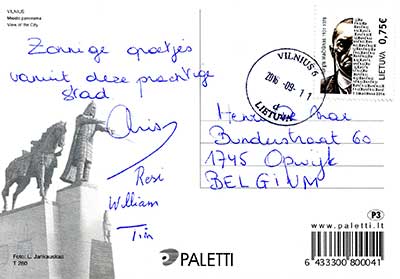 VILNIUS
Miesto panorama
View of the City
Zonnige groetjes
vanuit deze prachtige
stad
Chris
Resi
William
Tim
Foto: L. Jankauskas
T 260
PALETTI
VILNIUS 6
2016-09-11
d
LIETUVA
0,75€
LIETUVA
Henri De
Bundustraat 60
1745 Opwijk
BELGIUM
P3
www.paletti.lt
6 433300 800041